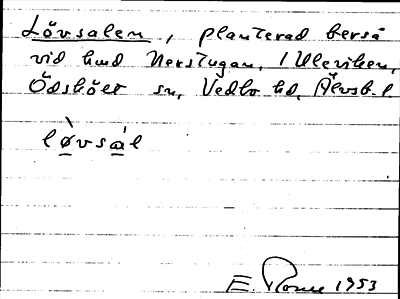 Lövsalen, planterad berså
vid hmd Nerstugan, Uleviken,
Ödskölt sn, Vedbo hd, Älvsb. l
lø̀vsál
E. 1953